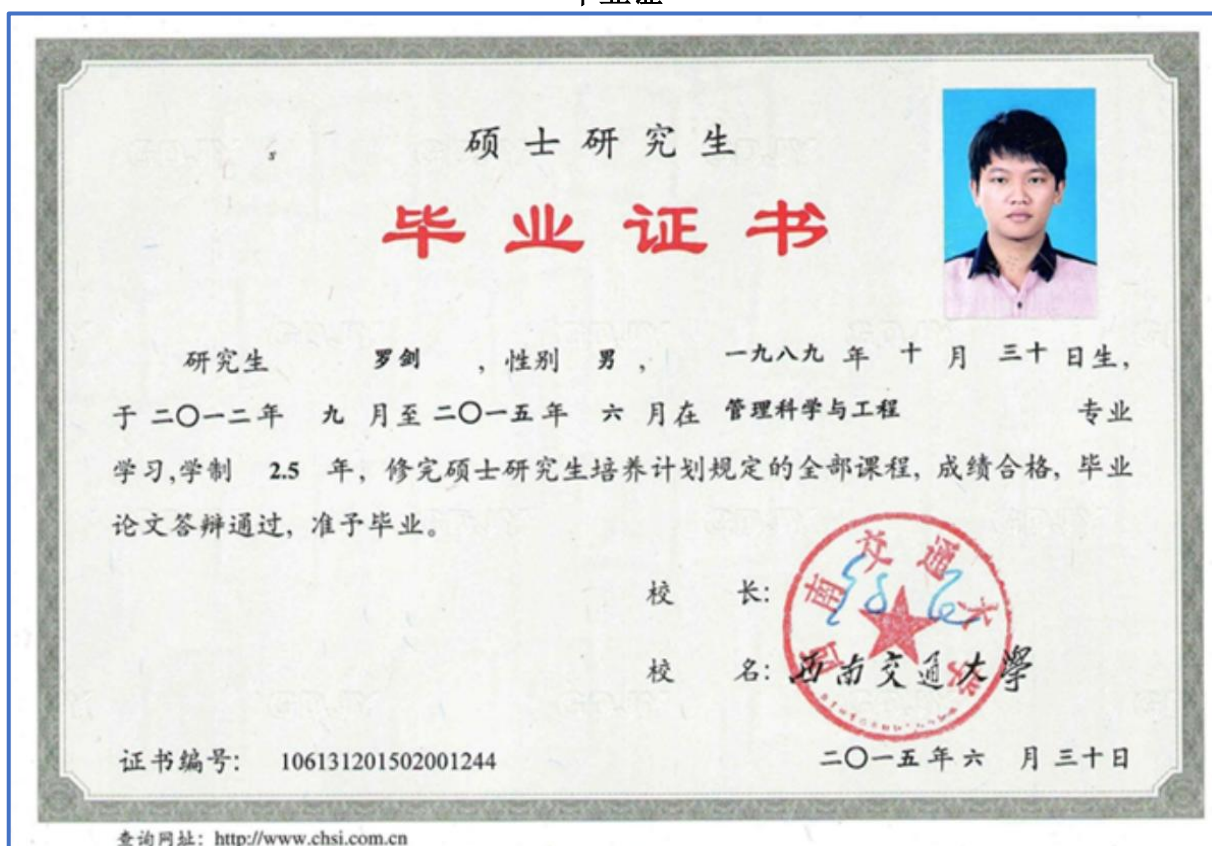 毕业证
硕士研究生
毕业证书
研究生 罗剑 ,性别 男 , 一九八九 年 十 月 三十 日生,
于 二〇一二年 九 月至 二〇一五年 六 月在 管理科学与工程 专业
学习,学制 2.5 年, 修完硕士研究生培养计划规定的全部课程, 成绩合格, 毕业
论文答辩通过, 准予毕业。
校 长:
西南交通大学
校 名: 西南交通大學
证书编号: 106131201502001244
二〇一五年 六 月 三十日
查询网址: http://www.chsi.com.cn